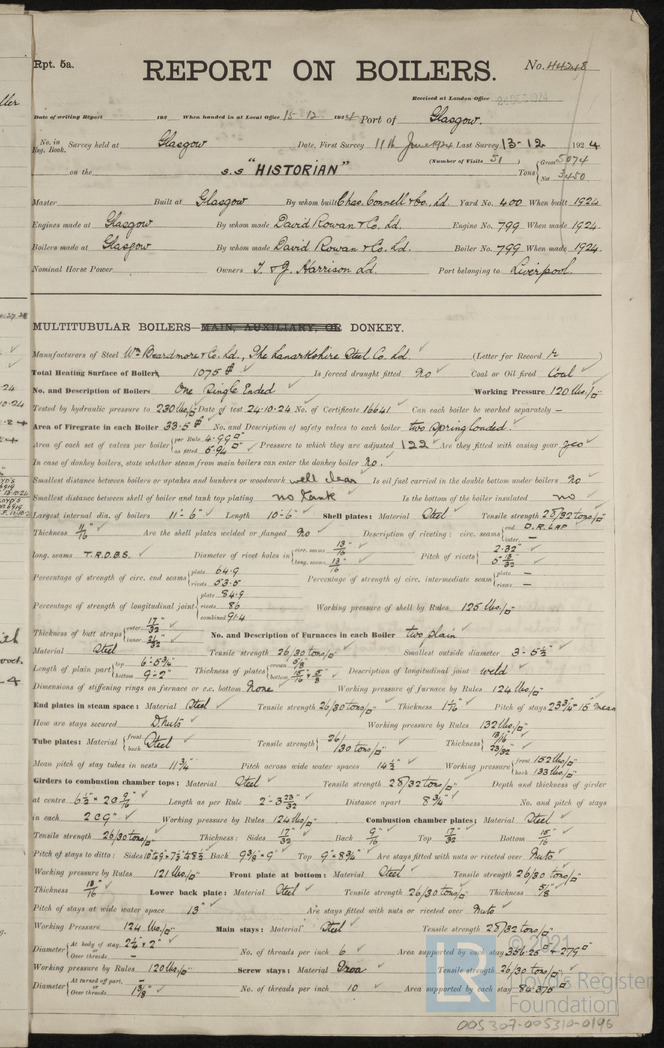 Rpt. 5a.
REPORT ON BOILERS.
No. 44248
Received at London Office
Date of writing Report 192 When handed in at Local Office 15.12.1924 Port of Glasgow.
No. in Reg. Book. Survey held at Glasgow Date, First Survey 11th June 1924 Last Survey 13-12 1924
(Number of Visits 51) Gross 5074
on the s.s "HISTORIAN" Tons Net 3450
Master Built at Glasgow By whom built Chas. Connell & Co., Ld. Yard No. 400 When built 1924
Engines made at Glasgow By whom made David Rowan & Co. Ld. Engine No. 799 When made 1924.
Boilers made at Glasgow By whom made David Rowan & Co. Ld. Boiler No. 799 When made 1924.
Nominal Horse Power Owners T. & J. Harrison Ld. Port belonging to Liverpool
MULTITUBULAR BOILERS—MAIN, AUXILIARY, OR DONKEY.
Manufacturers of Steel Wm Beardmore & Co. Ld., The Lanarkshire Steel Co. Ld. (Letter for Record r)
Total Heating Surface of Boilers 1075 Is forced draught fitted No Coal or Oil fired Coal
No. and Description of Boilers One Single Ended Working Pressure 120 lbs/□"
Tested by hydraulic pressure to 230 lbs/□" Date of test 24.10.24 No. of Certificate 16641 Can each boiler be worked separately —
Area of Firegrate in each Boiler 33.5 No. and Description of safety valves to each boiler two Spring loaded.
Area of each set of valves per boiler per Rule 4.99 □" as fitted 5.94 □" Pressure to which they are adjusted 122 Are they fitted with easing gear yes
In case of donkey boilers, state whether steam from main boilers can enter the donkey boiler No.
Smallest distance between boilers or uptakes and bunkers or woodwork well clear Is oil fuel carried in the double bottom under boilers No
Smallest distance between shell of boiler and tank top plating no tank Is the bottom of the boiler insulated no
Largest internal dia. of boilers 11'-6" Length 10'-6" Shell plates: Material Steel Tensile strength 28/32 tons/□"
Thickness 11/16" Are the shell plates welded or flanged No Description of riveting: circ. seams end D.R. LAP inter. —
long. seams T.R.D.B.S. Diameter of rivet holes in circ. seams 13/16 long. seams 13/16" Pitch of rivets 2.32" 5 13/32
Percentage of strength of circ. end seams plate 64.9 rivets 53.5 Percentage of strength of circ. intermediate seam plate — rivets —
Percentage of strength of longitudinal joint plate 84.9 rivets 86 combined 91.4 Working pressure of shell by Rules 125 lbs/□"
Thickness of butt straps outer 17/32 inner 21/32 No. and Description of Furnaces in each Boiler two plain
Material Steel Tensile strength 26/30 tons/□" Smallest outside diameter 3'-5½"
Length of plain part top 6'-5¾" bottom 9'-2" Thickness of plates crown 5/8 bottom Description of longitudinal joint weld
Dimensions of stiffening rings on furnace or c.c. bottom None Working pressure of furnace by Rules 124 lbs/□"
End plates in steam space: Material Steel Tensile strength 26/30 tons/□" Thickness Pitch of stays 23¾" × 15 mean
How are stays secured D.nuts Working pressure by Rules 132 lbs/□"
Tube plates: Material front back Steel Tensile strength 26/30 tons/□" Thickness 13/16" 23/32
Mean pitch of stay tubes in nests 11¾" Pitch across wide water spaces 14½" Working pressure front 152 lbs/□" back 133 lbs/□"
Girders to combustion chamber tops: Material Steel Tensile strength 28/32 tons/□" Depth and thickness of girder
at centre Length as per Rule 2'-3 23/32 Distance apart 8¾" No. and pitch of stays
in each 2 @ 9" Working pressure by Rules 124 lbs/□" Combustion chamber plates: Material Steel
Tensile strength 26/30 tons/□" Thickness: Sides 17/32 Back 9/16" Top 17/32 Bottom 15/16"
Pitch of stays to ditto: Sides Back 9¾" × 9" Top 9" × 8¾" Are stays fitted with nuts or riveted over Nuts
Working pressure by Rules 121 lbs/□" Front plate at bottom: Material Steel Tensile strength 26/30 tons/□"
Thickness 13/16" Lower back plate: Material Steel Tensile strength 26/30 tons/□" Thickness 5/8
Pitch of stays at wide water space 13" Are stays fitted with nuts or riveted over Nuts
Working Pressure 124 lbs/□" Main stays: Material Steel Tensile strength 28/32 tons/□"
Diameter At body of stay, or Over threads 2¼" × 2" — No. of threads per inch 6 Area supported by each stay 356.25 □" + 279 □"
Working pressure by Rules 120 lbs/□" Screw stays: Material Iron Tensile strength 26/30 tons/□"
Diameter At turned off part, or Over threads — 1⅜" No. of threads per inch 10 Area supported by each stay 84.375 □"
LR
© 2021
Lloyd's Register
Foundation
005307-005310-0196